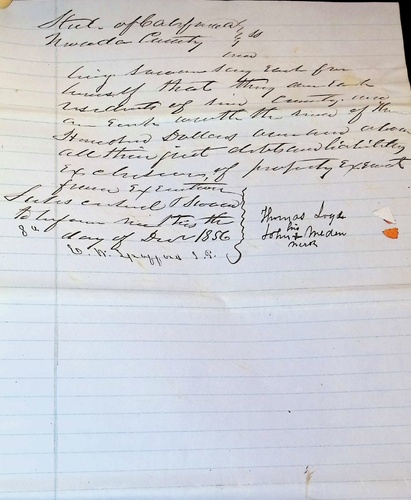 State of California } SS
Nevada County }
being Sworn Say Each for
himself that they are Each
residents of said County and
are Each worth the sum of
Hundred Dollars over and above
all their just debts and liabilities
Exclusive of property Exempt
from Execution
Subscribed & Sworn
to before me this the
8th day of Decr 1856
J.P.
Thomas
his
John + Meden
mark